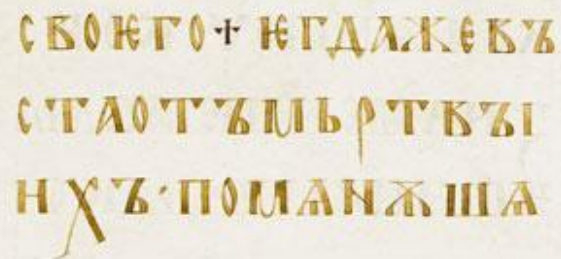 СВОѤГО ☩ ѤГДАЖЕВЪ
СТАОТЪМЬРТВЪІ
НХЪ·ПОМѦНѪШѦ